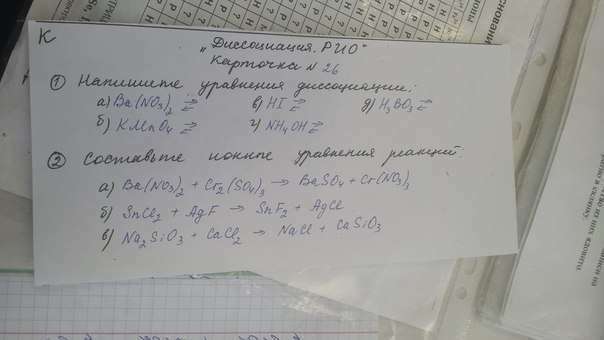 К
„Диссоциация. РИО"
Карточка N 26
① Напишите уравнения диссоциации:
а) Ba(NO₃)₂ ⇄ в) HI ⇄ д) H₃BO₃ ⇄
б) KMnO₄ ⇄ г) NH₄OH ⇄
② Составьте ионные уравнения реакций:
а) Ba(NO₃)₂ + Cr₂(SO₄)₃ → BaSO₄ + Cr(NO₃)₃
б) SnCl₂ + AgF → SnF₂ + AgCl
в) Na₂SiO₃ + CaCl₂ → NaCl + CaSiO₃